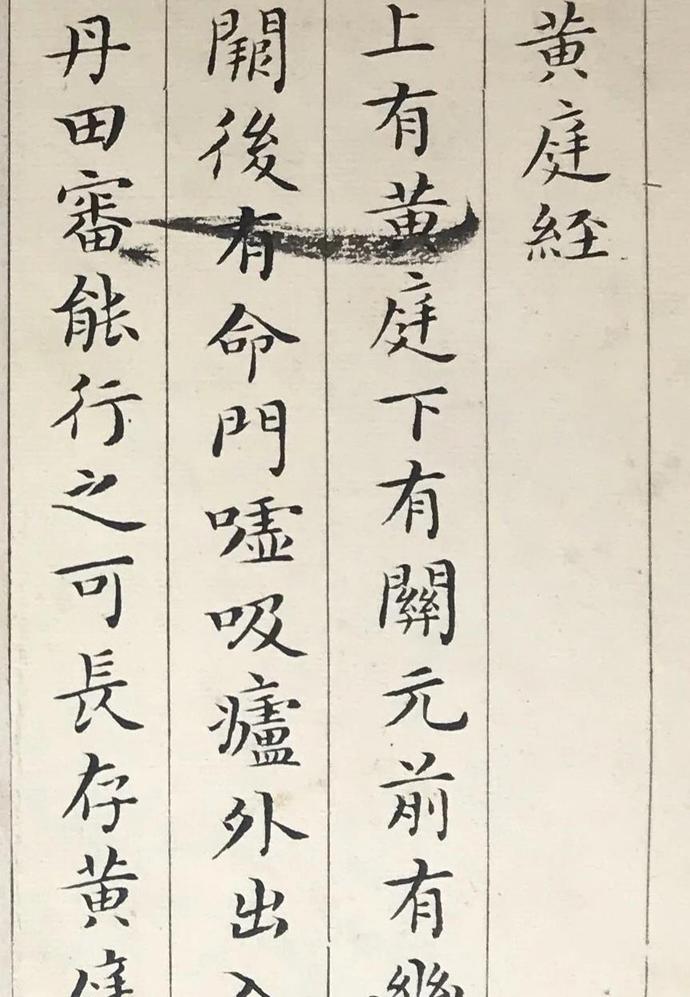 黄庭経
上有黄庭下有關元前有
闕後有命門嘘吸廬外出入
丹田審能行之可長存黄庭